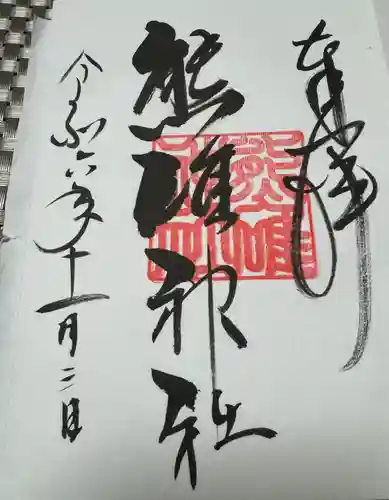 奉拝
熊唯神社
令和六年十一月二日